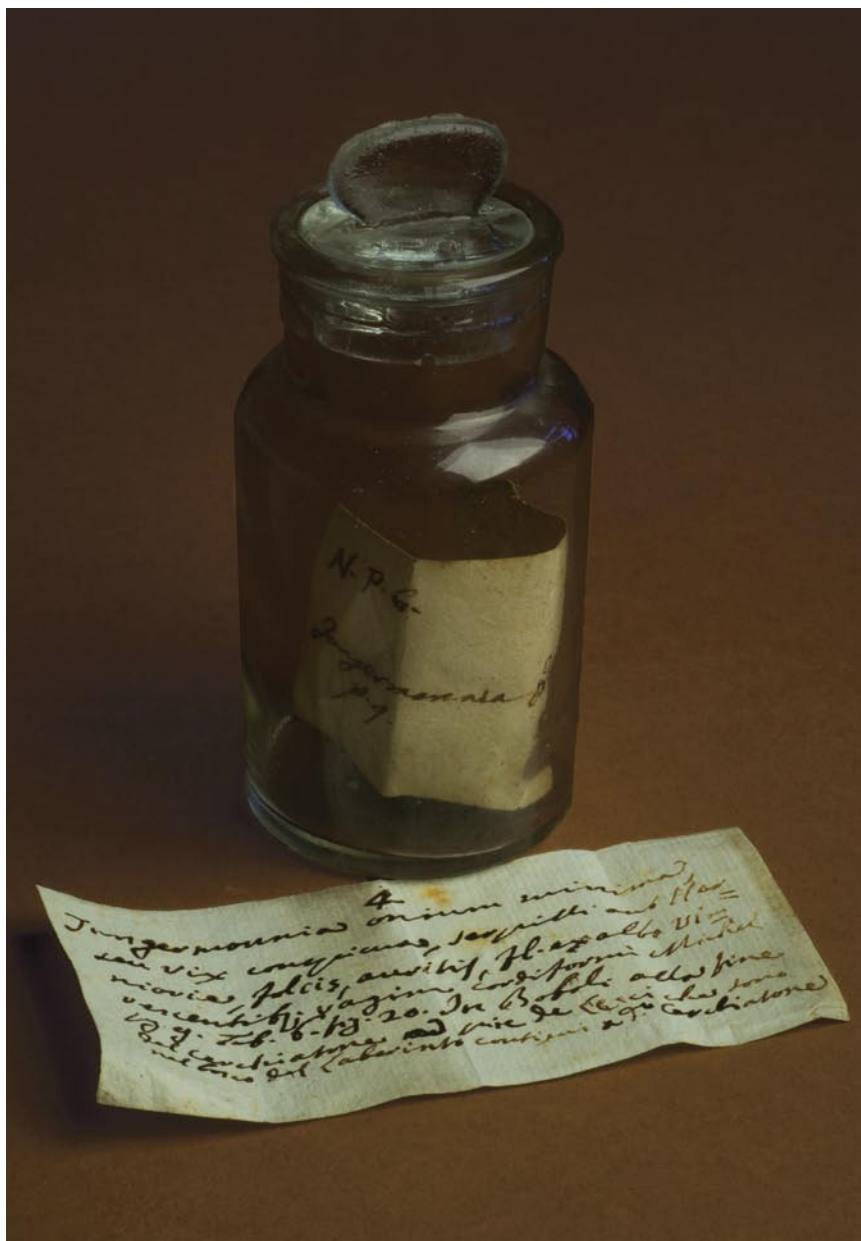 N. P. G.
Jungermannia
p. 9.
4
Jungermannia omnium minima
seu vix conspicua, serpilli aut Her=
niariæ, foliis, auritis, fl. ex albo vi=
rescentibus, vagina cordiformi Michel
p. 9. Tab. 6. fig. 20. In Boboli alla fine
del cerchiatone de Lecci che sono
nel del Laberinto contigui a d° Cerchiatone